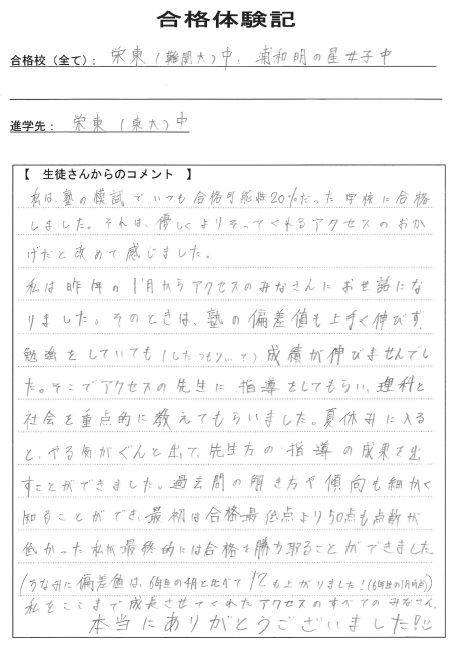 合格体験記
合格校（全て）: 栄東（難関大）中、浦和明の星女子中
進学先: 栄東（東大）中
【 生徒さんからのコメント 】
私は、塾の模試でいつも合格可能性20%だった学校に合格
しました。それは、優しくよりそってくれるアクセスのおか
げだと改めて感じました。
私は昨年の1月からアクセスのみなさんにお世話にな
りました。そのときは、塾の偏差値も上手く伸びず、
勉強をしていても（したつもり…?）成績が伸びませんでし
た。そこでアクセスの先生に指導をしてもらい、理科と
社会を重点的に教えてもらいました。夏休みに入る
と、やる気がぐんと出て、先生方の指導の成果を出
すことができました。過去問の解き方や傾向も細かく
知ることができ、最初は合格最低点より50点も点数が
低かった私が最終的には合格を勝ち取ることができました。
（ちなみに偏差値は、6年目の4月と比べて12も上がりました!（6年目の1月時点））
私をここまで成長させてくれたアクセスのすべてのみなさん、
本当にありがとうございました!!